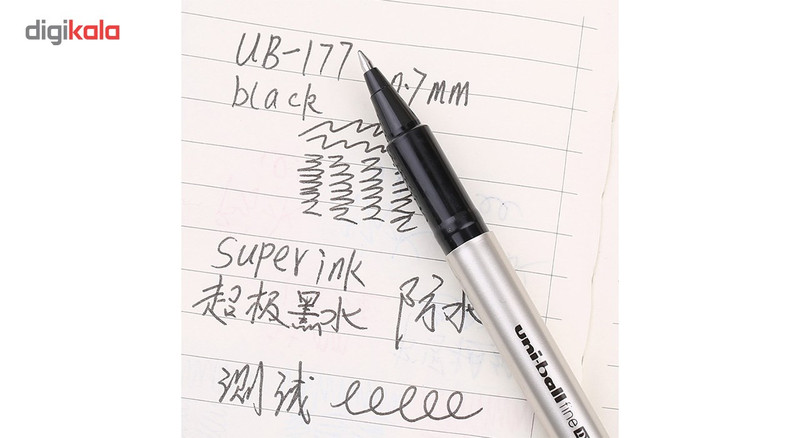 digikala
UB-177 0.7mm
black
super ink
超极黑水 防水
测试
uni-ball fine